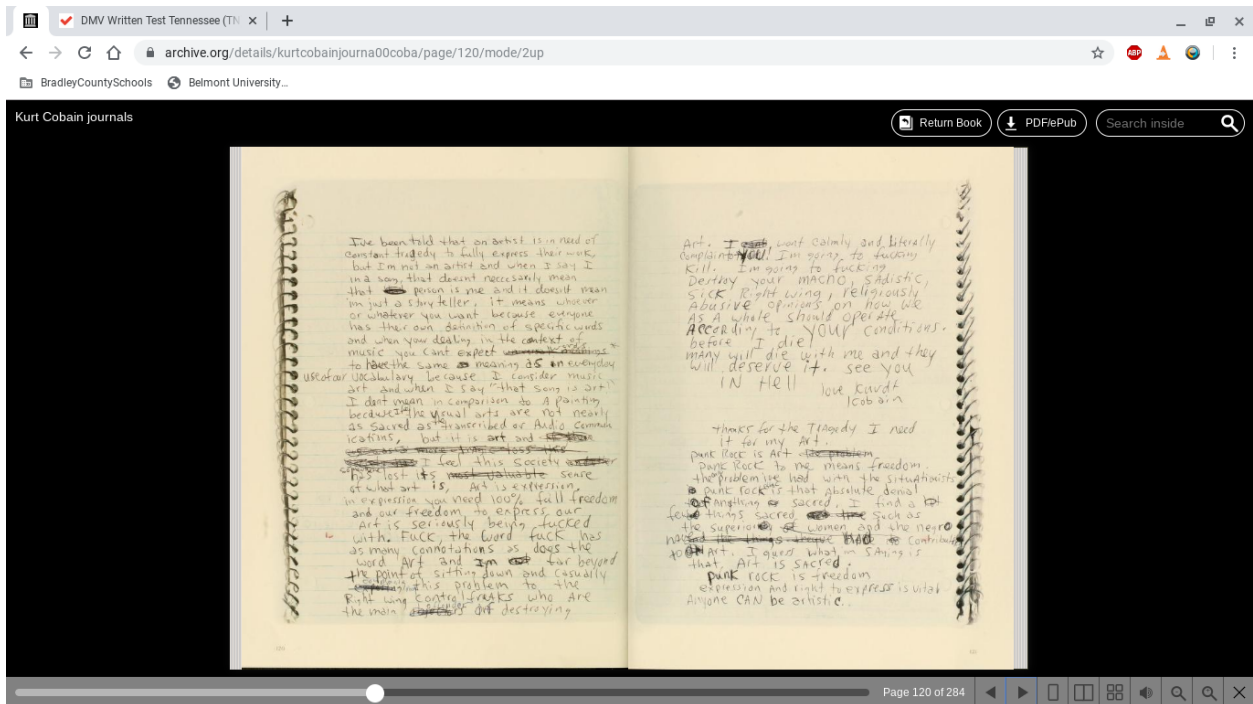 DMV Written Test Tennessee (TN
archive.org/details/kurtcobainjourna00coba/page/120/mode/2up
ABP
BradleyCountySchools
Belmont University...
Kurt Cobain journals
Return Book
PDF/ePub
Search inside
I've been told that an artist is in need of
constant tragedy to fully express their work,
but I'm not an artist and when I say I
in a song, that doesnt neccesarily mean
that person is me and it doesnt mean
im just a story teller, it means whoever
or whatever you want because everyone
has their own definition of specific words
and when your dealing in the context of
music you cant expect words
to have the same meaning as in everyday
use of our vocabulary because I consider music
art and when I say "that song is art"
I dont mean in comparison to A painting
because the visual arts are not nearly
as sacred as the transcribed or Audio commun
ications, but it is art and
I feel this society
has lost its sense
of what art is, Art is expression,
in expression you need 100% full freedom
and our freedom to express our
Art is seriously being fucked
with. Fuck, the word fuck has
as many connotations as does the
word Art and Im far beyond
the point of sitting down and casually
this problem to the
Right wing control freaks who are
the main Art destroying
Art. I wont calmly and literally
complain to you! Im going to fucking
Kill. Im going to fucking
Destroy your macho, sadistic,
sick Right wing, religiously
Abusive opinions on how we
As A whole should operate
According to YOUR conditions.
before I die
many will die with me and they
will deserve it. see you
IN Hell
love Kurdt
Kobain
thanks for the Tragedy I need
it for my Art.
punk Rock is Art
punk Rock to me means freedom.
the problem ive had with the situationists
punk rock is that absolute denial
of Anything sacred. I find a
few things sacred such as
the superiority of women and the negro
contribution
to Art. I guess what im saying is
that, Art is sacred.
punk rock is freedom
expression And right to express is vital
Anyone CAN be artistic..
Page 120 of 284